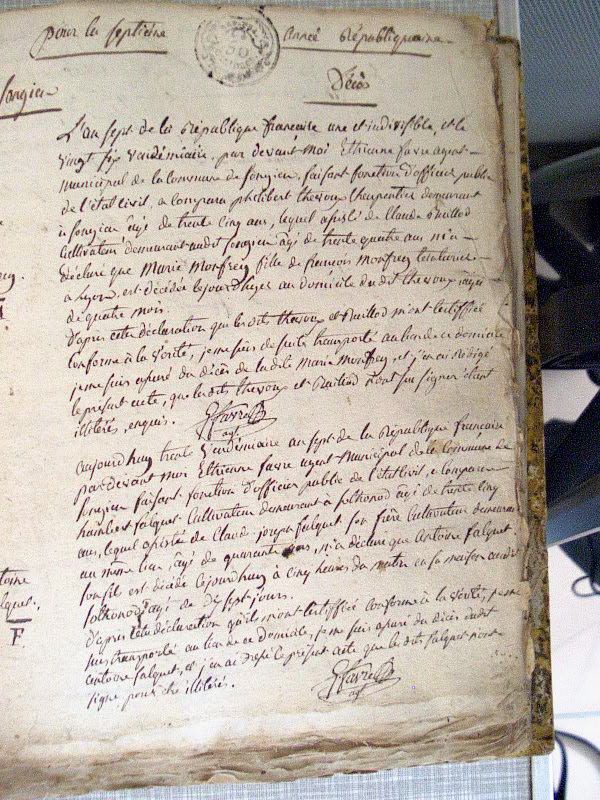 pour la septieme année républiquaine
Songieu
Décès
L'an sept de la République française une et indivisible, et le
vingt six vendémiaire, par devant moi Ethienne favre agent
municipal de la Commune de Songieu, faisant fonction d'officier public
de l'état civil, a comparu philibert thevoux charpentier demeurant
à Songieu âgé de trente cinq ans, lequel assisté de Claude
Cultivateur demeurant audit Songieu âgé de trente quatre ans m'a
déclaré que Marie Monfrey fille de françois Monfrey teinturier
a Lyon est décédée au domicile dudit thevoux agée
de quatre mois.
D'après cette déclaration que lesdits thevoux et m'ont certiffié
conforme à la vérité, je me suis de suite transporté au lieu de ce domicile
je me suis assuré du décès de ladite Marie Monfrey, et j'en ai rédigé
le présent acte, que lesdits thevoux et n'ont su signer étant
illitérés, enquis. Favre
agt
aujourd'huy trente Vendémiaire an sept de la République française
par devant moi Ethienne favre agent Municipal de la Commune de
Songieu faisant fonction d'officier public de l'état civil, a comparu
humbert falquet Cultivateur demeurant à âgé de trente cinq
ans, lequel assisté de Claude joseph falquet son frère Cultivateur demeurant
au même lieu âgé de quarante ans, m'a déclaré que Antoine falquet
son fils est décédé aujourd'huy à cinq heures du matin en sa maison audit
agé de sept jours.
D'après cette déclaration qu'ils m'ont certiffié conforme à la vérité, je me
suis transporté au lieu de ce domicile, je me suis assuré du décès dudit
antoine falquet, et j'en ai dressé le présent acte que lesdits falquet n'ont
signé pour être illitérés.
Favre
agt
F.